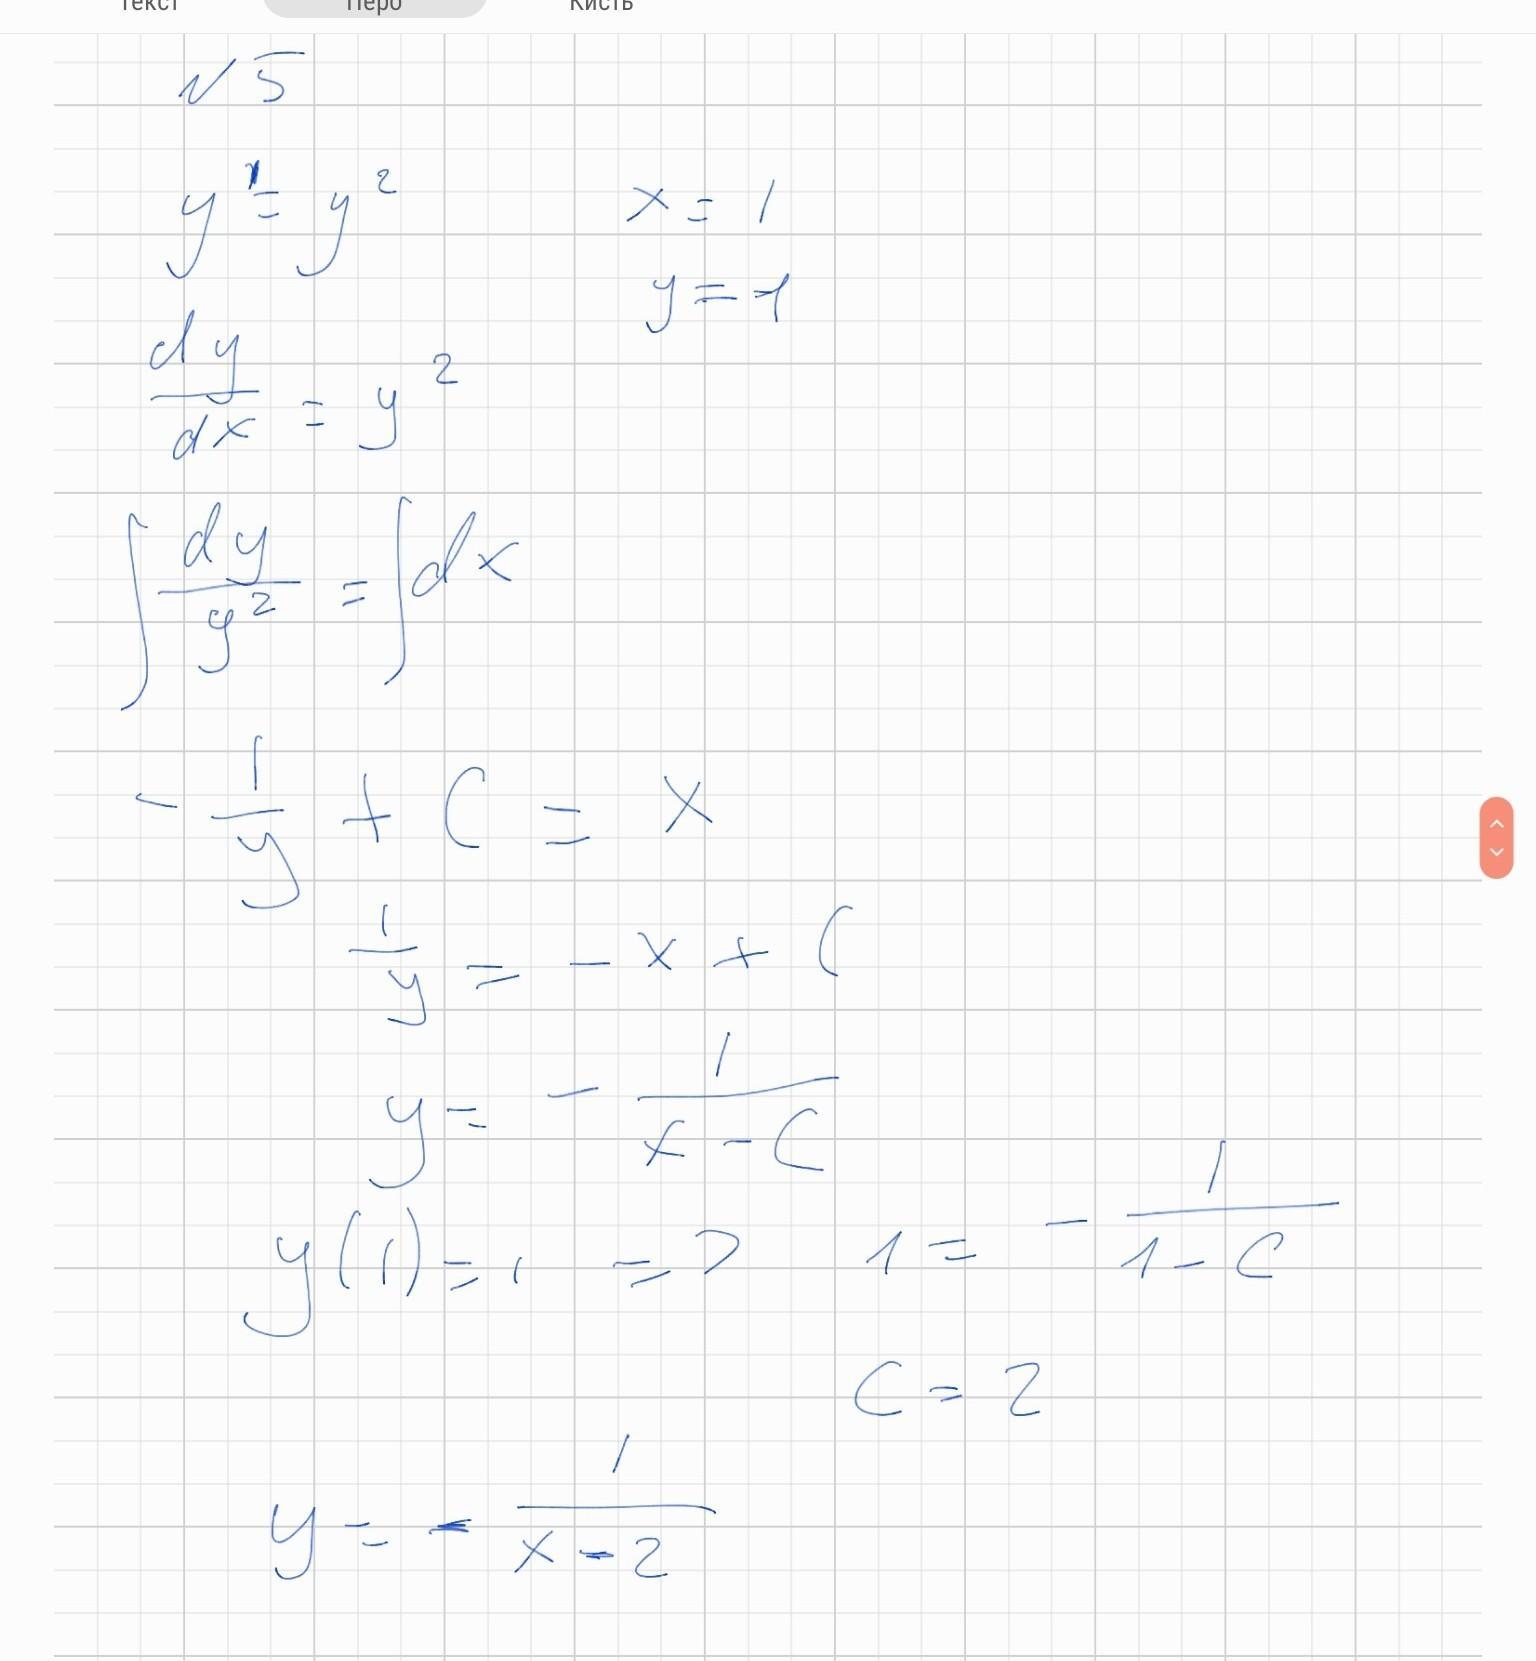 Текст Перо Кисть
√5
y' = y² x = 1
y = -1
dy/dx = y²
∫ dy/y² = ∫ dx
- 1/y + C = x
1/y = - x + C
y = - 1/(x - C)
y(1) = 1 => 1 = - 1/(1 - C)
C = 2
y = - 1/(x - 2)